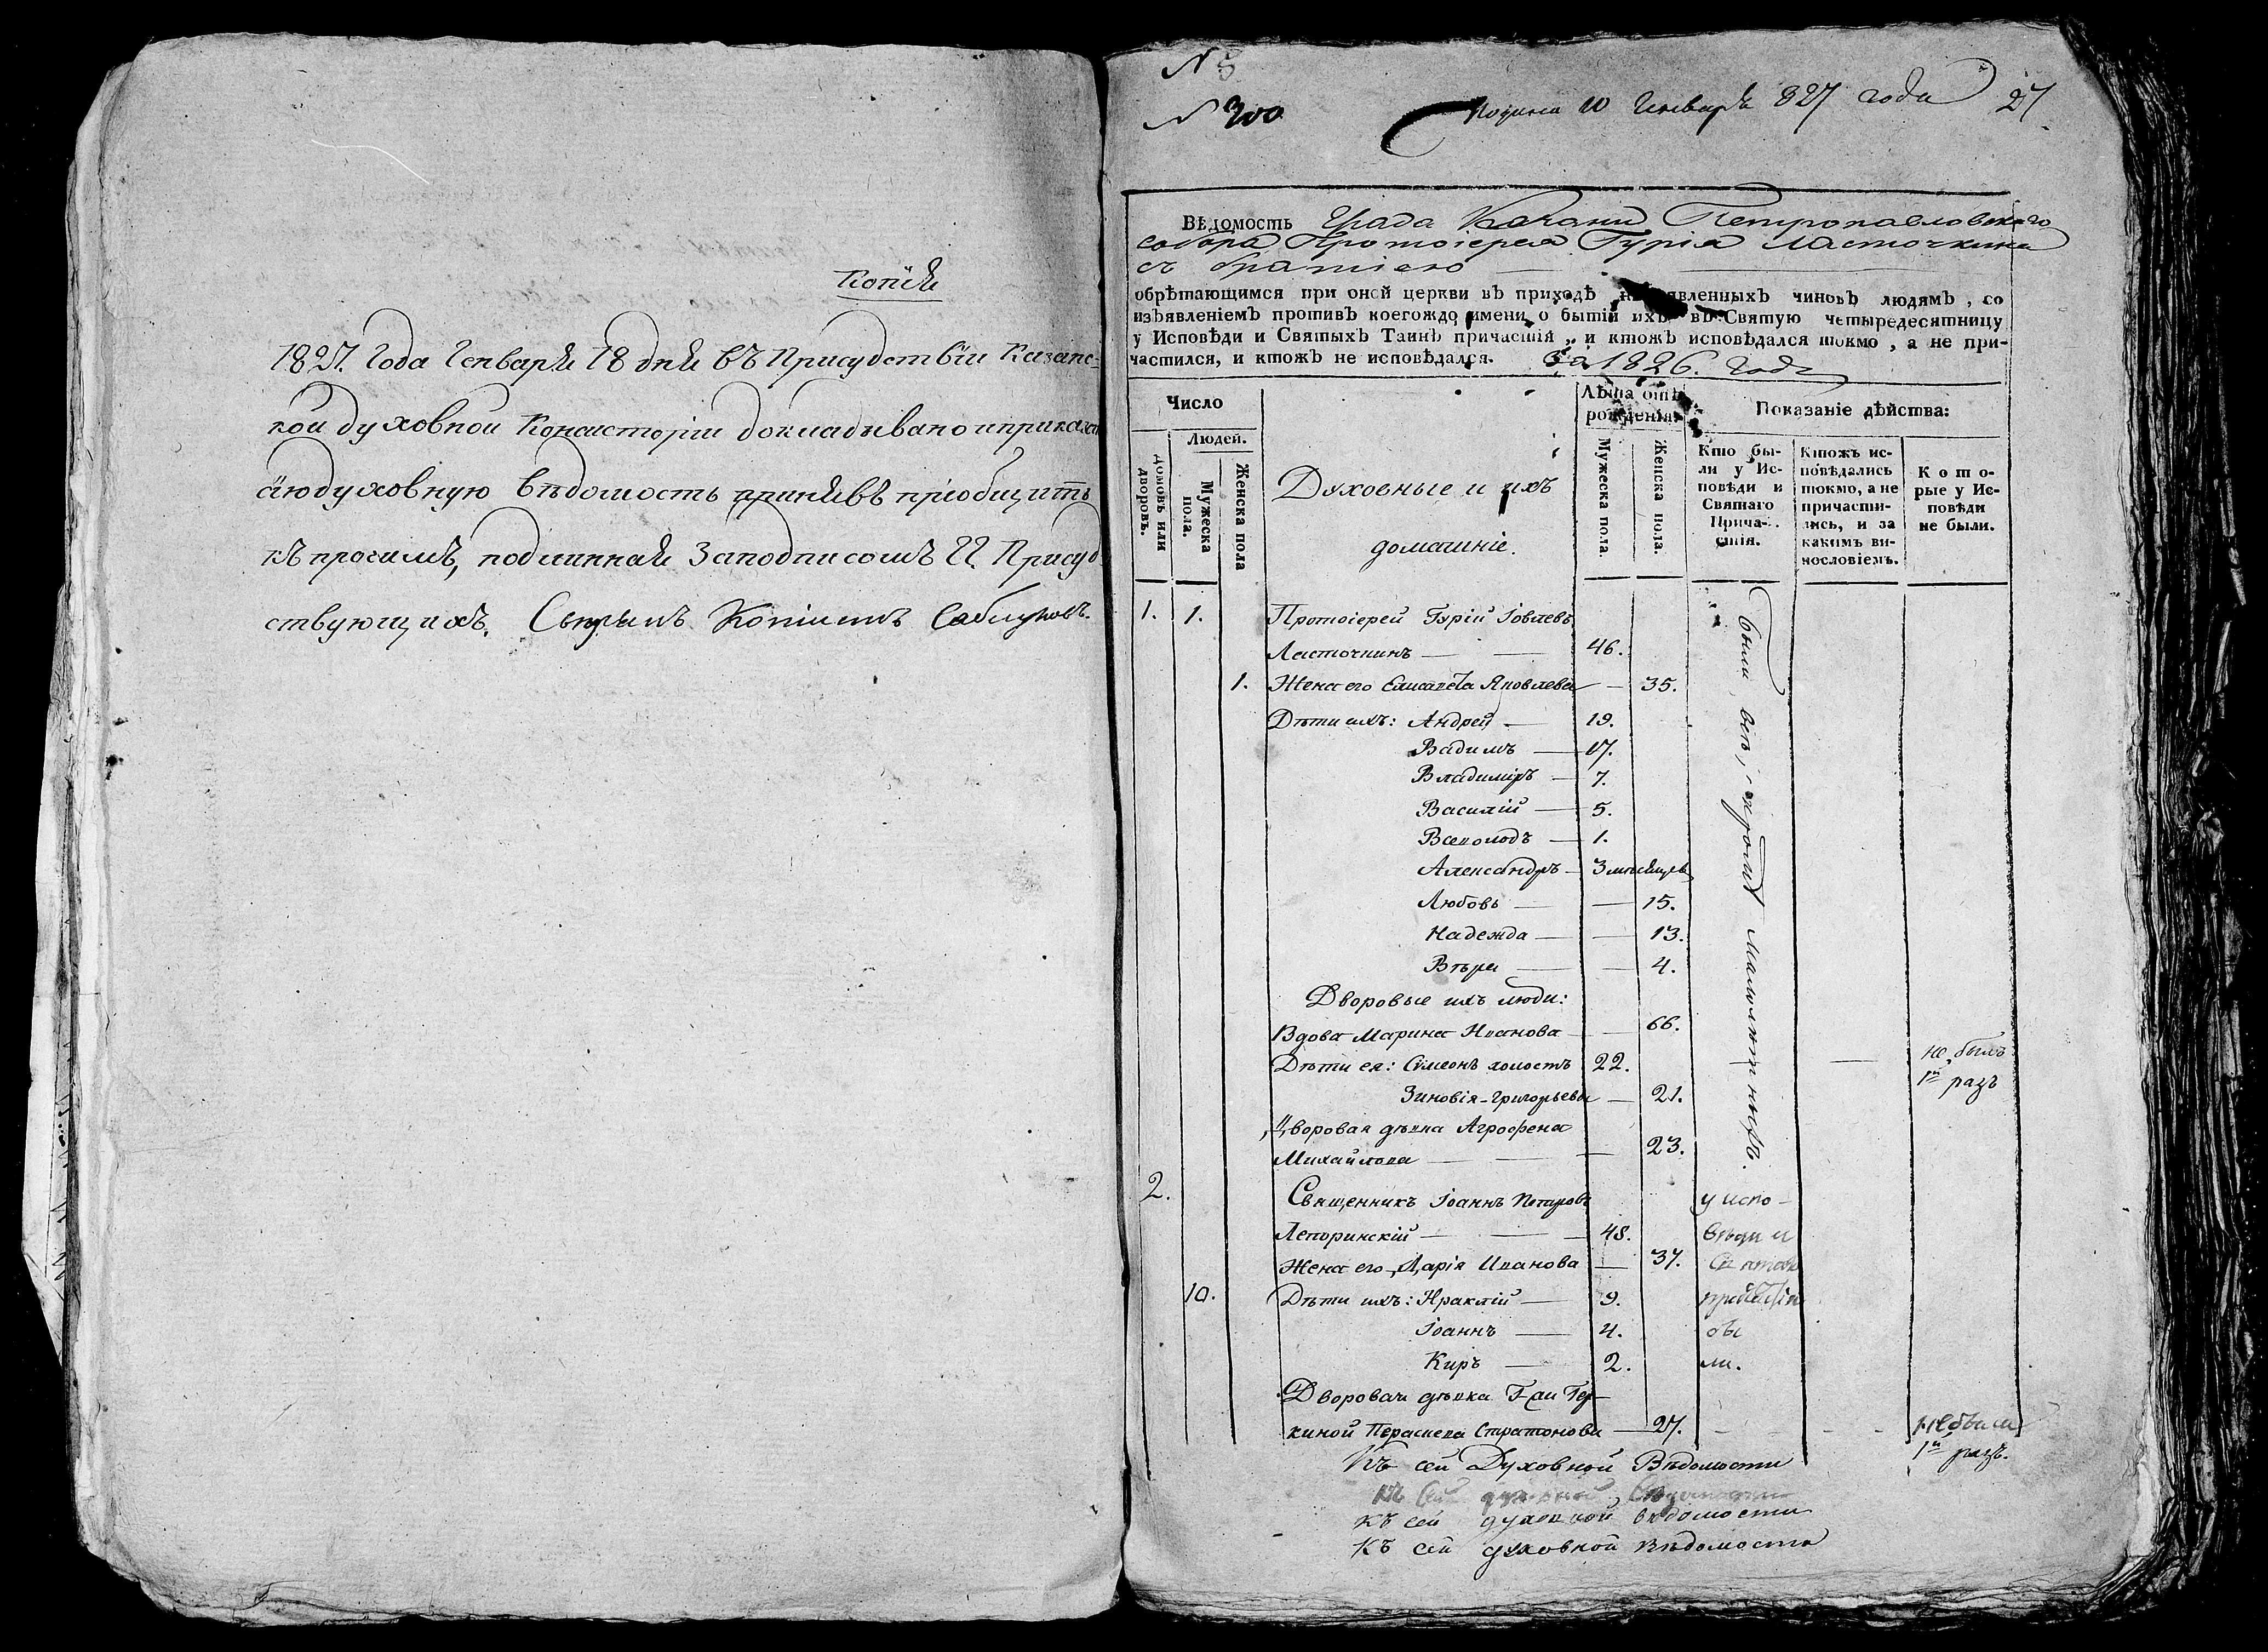 Копія
1827. Года Генваря 18 дня въ Присудствіи Казанс-
кой духовной Консисторіи докладывано и приказали
сію духовную вѣдомость принявъ пріобщить
къ прочимъ, подлинная за подписомъ Гг. Присуд
ствующихъ. Скрѣпилъ Копіистъ Саблуковъ.
N 8
N 300
Подана 10 Генваря 827 года
27
Вѣдомость Града Казани Петропавловскаго
собора Протоіерея Гурія Ласточкина
съ братіею
обрѣтающимся при оной церкви въ приходѣ нижеявленныхъ чиновъ людямъ, со
изъявленіемъ противъ коегождо имени о бытіи ихъ въ Святую четыредесятницу
у Исповѣди и Святыхъ Таинъ причастія, и ктожъ исповѣдался токмо, а не при-
частился, и ктожъ не исповѣдался. За 1826. годъ
Число
Лѣта отъ рожденія.
Показаніе дѣйства:
Людей.
домовъ или дворовъ.
Мужеска пола.
Женска пола
Духовные и ихъ
домашніе.
Мужеска пола.
Женска пола.
Кто бы-
ли у Ис-
повѣди и
Святаго
Прича-
стія.
Ктожъ ис-
повѣдались
токмо, а не
причасти-
лись, и за
какимъ ви-
нословіемъ.
Кото-
рые у Ис-
повѣди
не были.
1. 1. Протоіерей Гурій Іовлевъ
Ласточкинъ — — 46.
1. Жена его Елисавета Яковлева — 35.
Дѣти ихъ: Андрей — 19.
Вадимъ — 17.
Владиміръ — 7.
Василій — 5.
Всеволодъ — 1.
Александръ — 3 мѣсяцев
Любовь — — 15.
Надежда — — 13.
Вѣра — — 4.
Были всѣ, кромѣ малолѣтныхъ.
Дворовые ихъ люди:
Вдова Марина Иванова — 66.
Дѣти ея: Сѵмеонъ холостъ 22. — не былъ
1й разъ
Зиновія Григорьевы — 21.
Дворовая дѣвка Агрофена
Михайлова — — — 23.
2. Священникъ Іоаннъ Петровъ у испо-
Лепоринскій — — 48. вѣди и
Жена его Дарія Иванова — 37. Св
10. Дѣти ихъ: Ираклій — 9.
Іоаннъ — 4.
Киръ — 2. ли.
Дворовая дѣвка Г-жи
киной Параскева Стратонова — 27. — — — не была
1й разъ.
Къ сей Духовной Вѣдомости
къ сей духовной вѣдомости
къ сей духовной вѣдомости
къ сей духовной вѣдомости